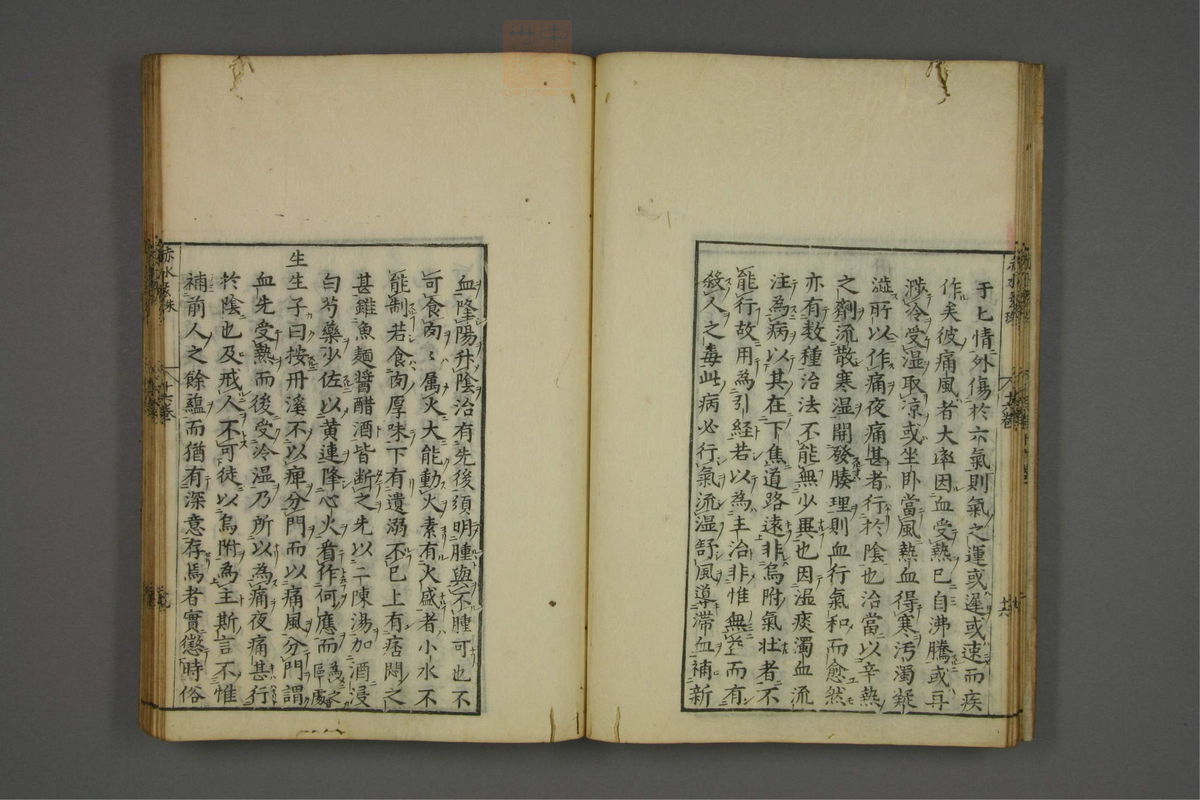 于七情外傷於六氣則氣之運或遲或速而疾
作矣彼痛風者大率因血受熱已自沸騰或再
渉冷受湿取涼或坐卧當風熱血得寒汚濁凝
澁所以作痛夜痛甚者行於陰也治當以辛熱
之劑流散寒湿開發腠理則血行氣和而愈然
亦有数種治法不能無少異也因湿痰濁血流
注為病以其在下焦道路遠非烏附氣壮者不
能行故用為引経若以為主治非惟無益而有
殺人之毒此病必行氣流湿舒風導滯血補新
血降陽升陰治有先後須明腫與不腫可也不
可食肉〻属火大能動火素有火盛者小水不
能制若食肉厚味下有遺溺不已上有痞悶之
甚雖魚麺醬醋酒皆断之先以二陳湯加酒浸
白芍藥少佐以黄連降心火看作何應而為之區處
生生子曰按丹溪不以痺分門而以痛風分門謂
血先受熱而後受冷湿乃所以為痛夜痛甚行
於陰也及戒人不可徒以烏附為主斯言不惟
補前人之餘蘊而猶有深意存焉者實懲時俗
赤水玄珠